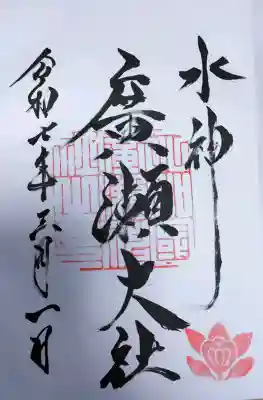 水神
廣瀬大社
令和七年三月一日